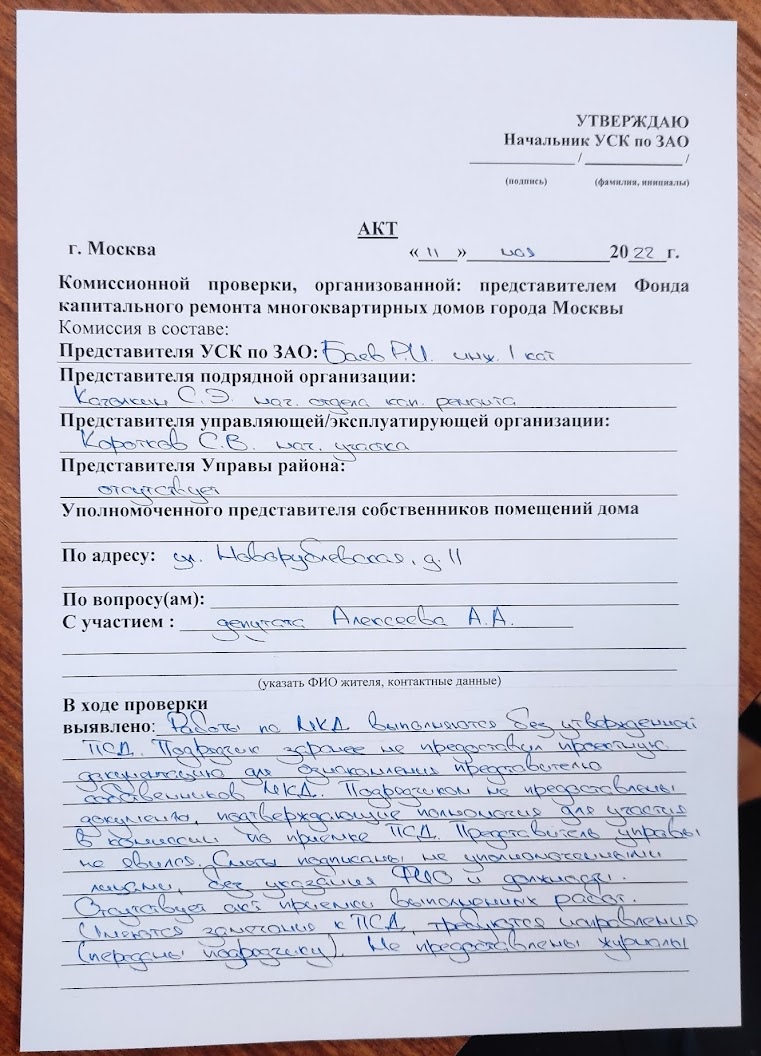 УТВЕРЖДАЮ
Начальник УСК по ЗАО
____________ / ____________ /
(подпись) (фамилия, инициалы)
АКТ
г. Москва « 11 » мая 2022 г.
Комиссионной проверки, организованной: представителем Фонда
капитального ремонта многоквартирных домов города Москвы
Комиссия в составе:
Представителя УСК по ЗАО: Баев Р.И. инж. 1 кат
Представителя подрядной организации:
С.Э. нач. отдела кап. ремонта
Представителя управляющей/эксплуатирующей организации:
Коротков С.В. нач. участка
Представителя Управы района:
отсутствует
Уполномоченного представителя собственников помещений дома
По адресу: ул. Новорублевская, д. 11
По вопросу(ам):
С участием : депутата Алексеева А.А.
(указать ФИО жителя, контактные данные)
В ходе проверки
выявлено: Работы по МКД выполняются без утвержденной
ПСД. Подрядчик заранее не предоставил проектную
документацию для ознакомления представителю
собственников МКД. Подрядчиком не предоставлены
документы, подтверждающие полномочия для участия
в комиссии по приемке ПСД. Представитель управы
не явился. Сметы подписаны не уполномоченными
лицами, без указания ФИО и должности.
Отсутствует акт приемки выполненных работ.
Имеются замечания к ПСД, требуются исправления
(переданы подрядчику). Не предоставлены журналы